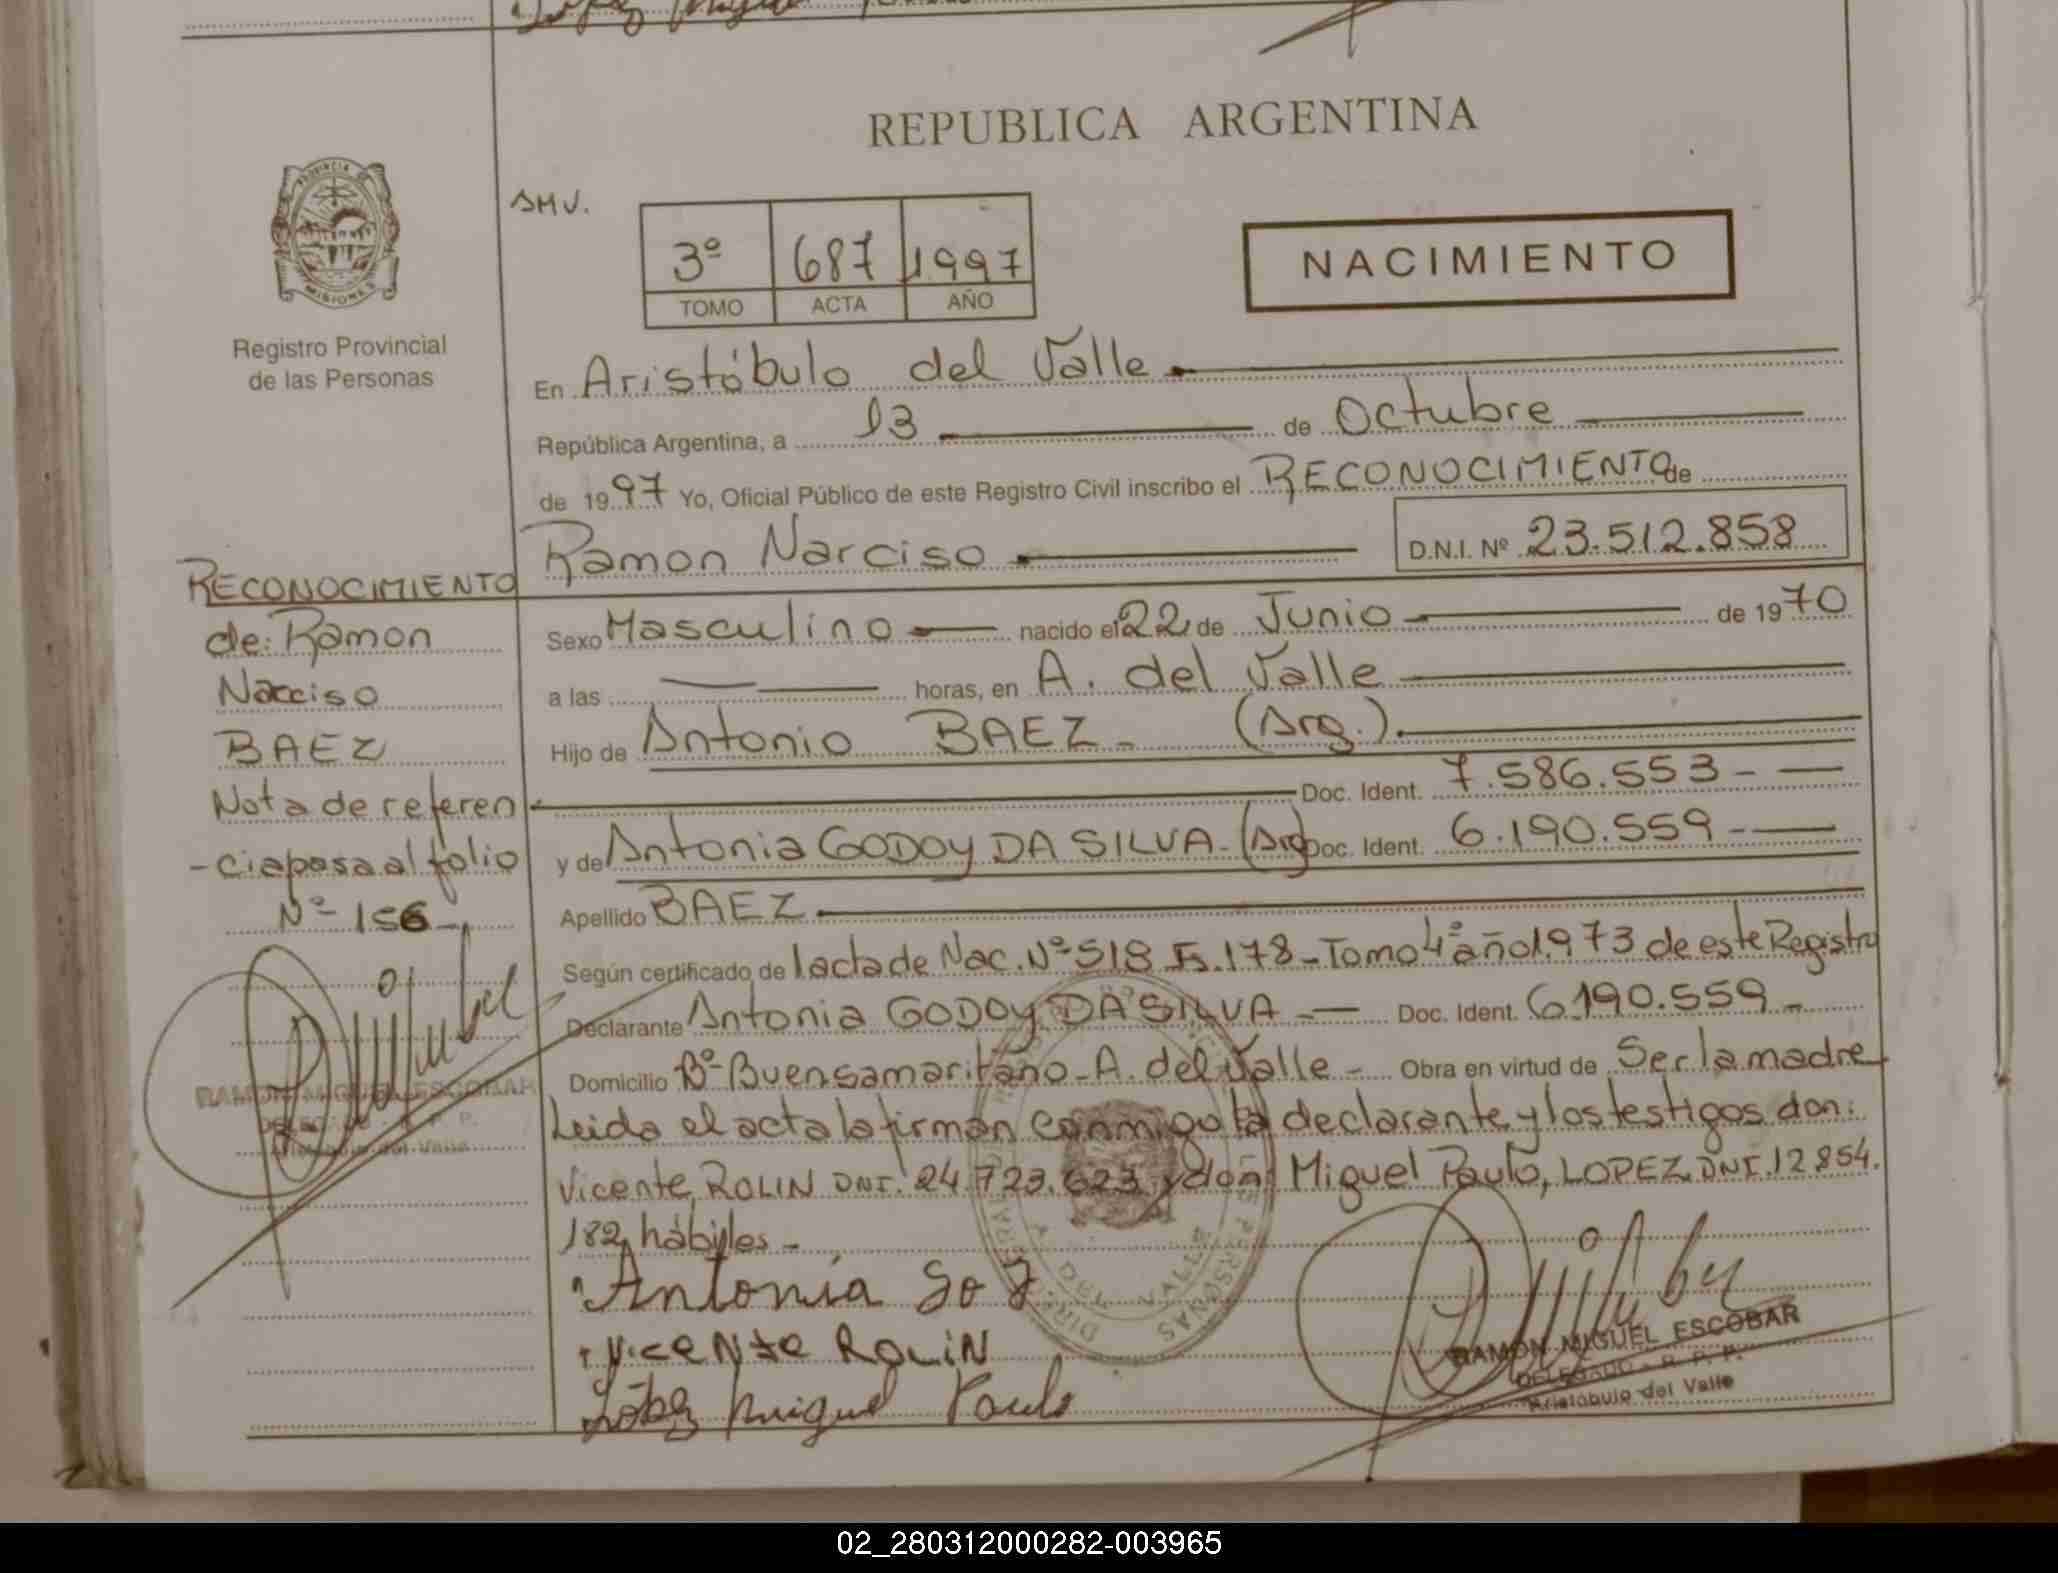 López Miguel
REPUBLICA ARGENTINA
PROVINCIA DE
MISIONES
Registro Provincial
de las Personas
SMV.
3º 687 1997
TOMO ACTA AÑO
NACIMIENTO
En Aristóbulo del Valle
República Argentina, a 13 de Octubre
de 1997 Yo, Oficial Público de este Registro Civil inscribo el RECONOCIMIENTO de
Ramon Narciso D.N.I. Nº 23.512.858
RECONOCIMIENTO
de: Ramon
Narciso
BAEZ
Nota de referen
-cia pasa al folio
Nº 156-
RAMON MIGUEL ESCOBAR
Aristobulo del Valle
Sexo Masculino nacido el 22 de Junio de 1970
a las horas, en A. del Valle
Hijo de Antonio BAEZ - (Arg.).
Doc. Ident. 7.586.553 -
y de Antonia GODOY DA SILVA - (Arg) Doc. Ident. 6.190.559 -
Apellido BAEZ
Según certificado de l acta de Nac. Nº 518 F. 178 - Tomo 4º año 1.973 de este Registro
Declarante Antonia GODOY DA SILVA - Doc. Ident. 6.190.559 -
Domicilio Bº Buen samaritano - A. del Valle - Obra en virtud de Ser la madre
Leida el acta la firman conmigo la declarante y los testigos don:
Vicente, ROLIN DNI. 24.723.623 y don: Miguel Paulo, LOPEZ. DNI. 12.854.
182, hábiles -
Antonia Go
VICENTE ROLIN
López Miguel Paulo
A. DEL VALLE
RAMON MIGUEL ESCOBAR
DELEGADO - R. P. P.
Aristóbulo del Valle
02_280312000282-003965